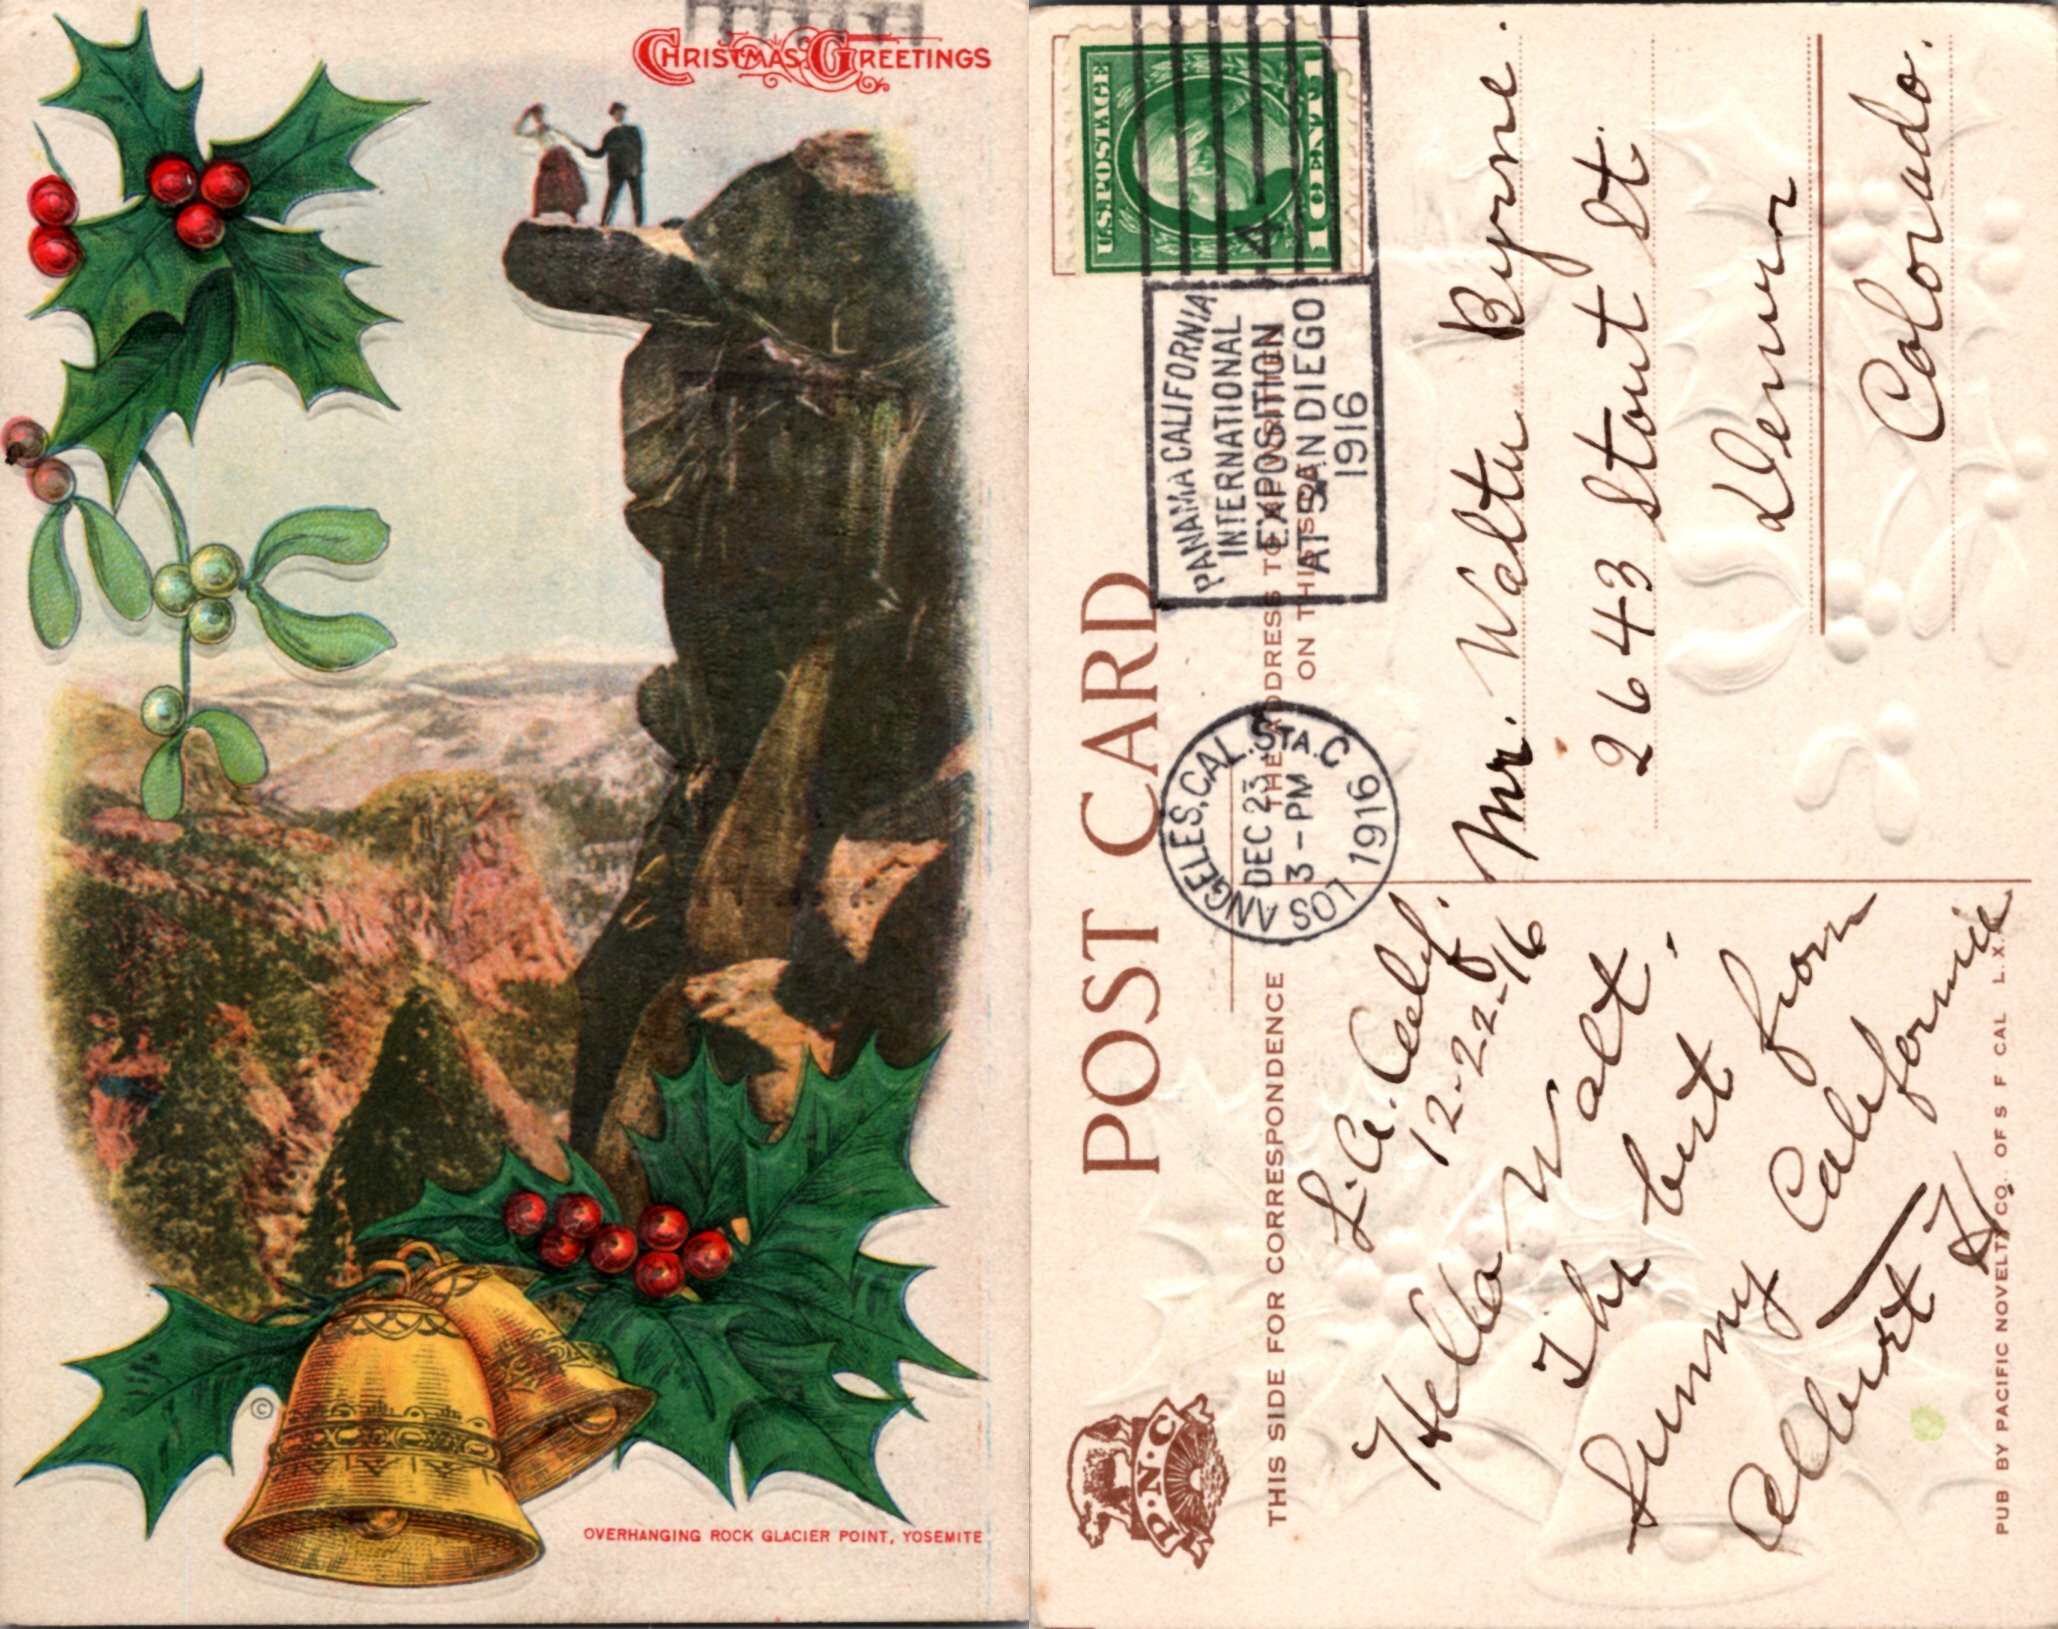 CHRISTMAS GREETINGS
OVERHANGING ROCK GLACIER POINT, YOSEMITE
©
POST CARD
THIS SIDE FOR CORRESPONDENCE
THE ADDRESS TO BE WRITTEN
ON THIS SIDE
U.S. POSTAGE
1 CENT 1
4
PANAMA CALIFORNIA
INTERNATIONAL
EXPOSITION
AT SAN DIEGO
1916
LOS ANGELES, CAL. STA. C
DEC 23
3-PM
1916
P.N.C
L.A. Calif.
12-22-16
Hello Walt.
The best from
Sunny California
Albert H.
Mr. Walter Byrne.
2643 Stout St.
Denver
Colorado.
PUB BY PACIFIC NOVELTY CO. OF S F CAL L.X.